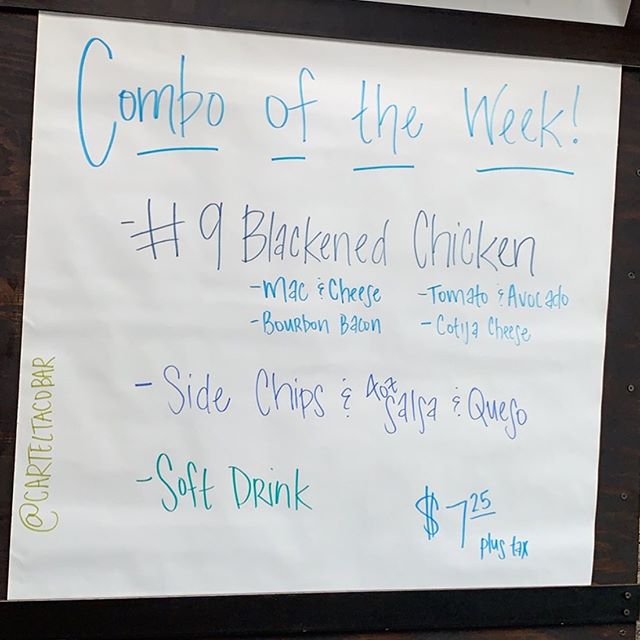 Combo of the Week!
-#9 Blackened Chicken
-Mac & Cheese -Tomato & Avocado
-Bourbon Bacon -Cotija Cheese
-Side Chips & 4oz Salsa & Queso
-Soft Drink
$7.25
plus tax
@CARTELTACOBAR